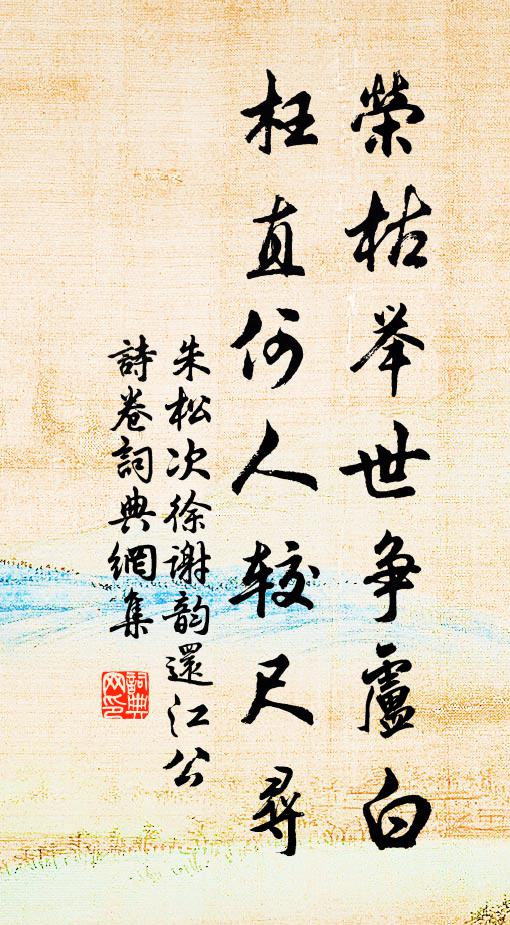 榮枯举世争盧白
枉直何人较尺尋
朱松次徐谢韵還江公
詩卷詞典網集
詞典网印